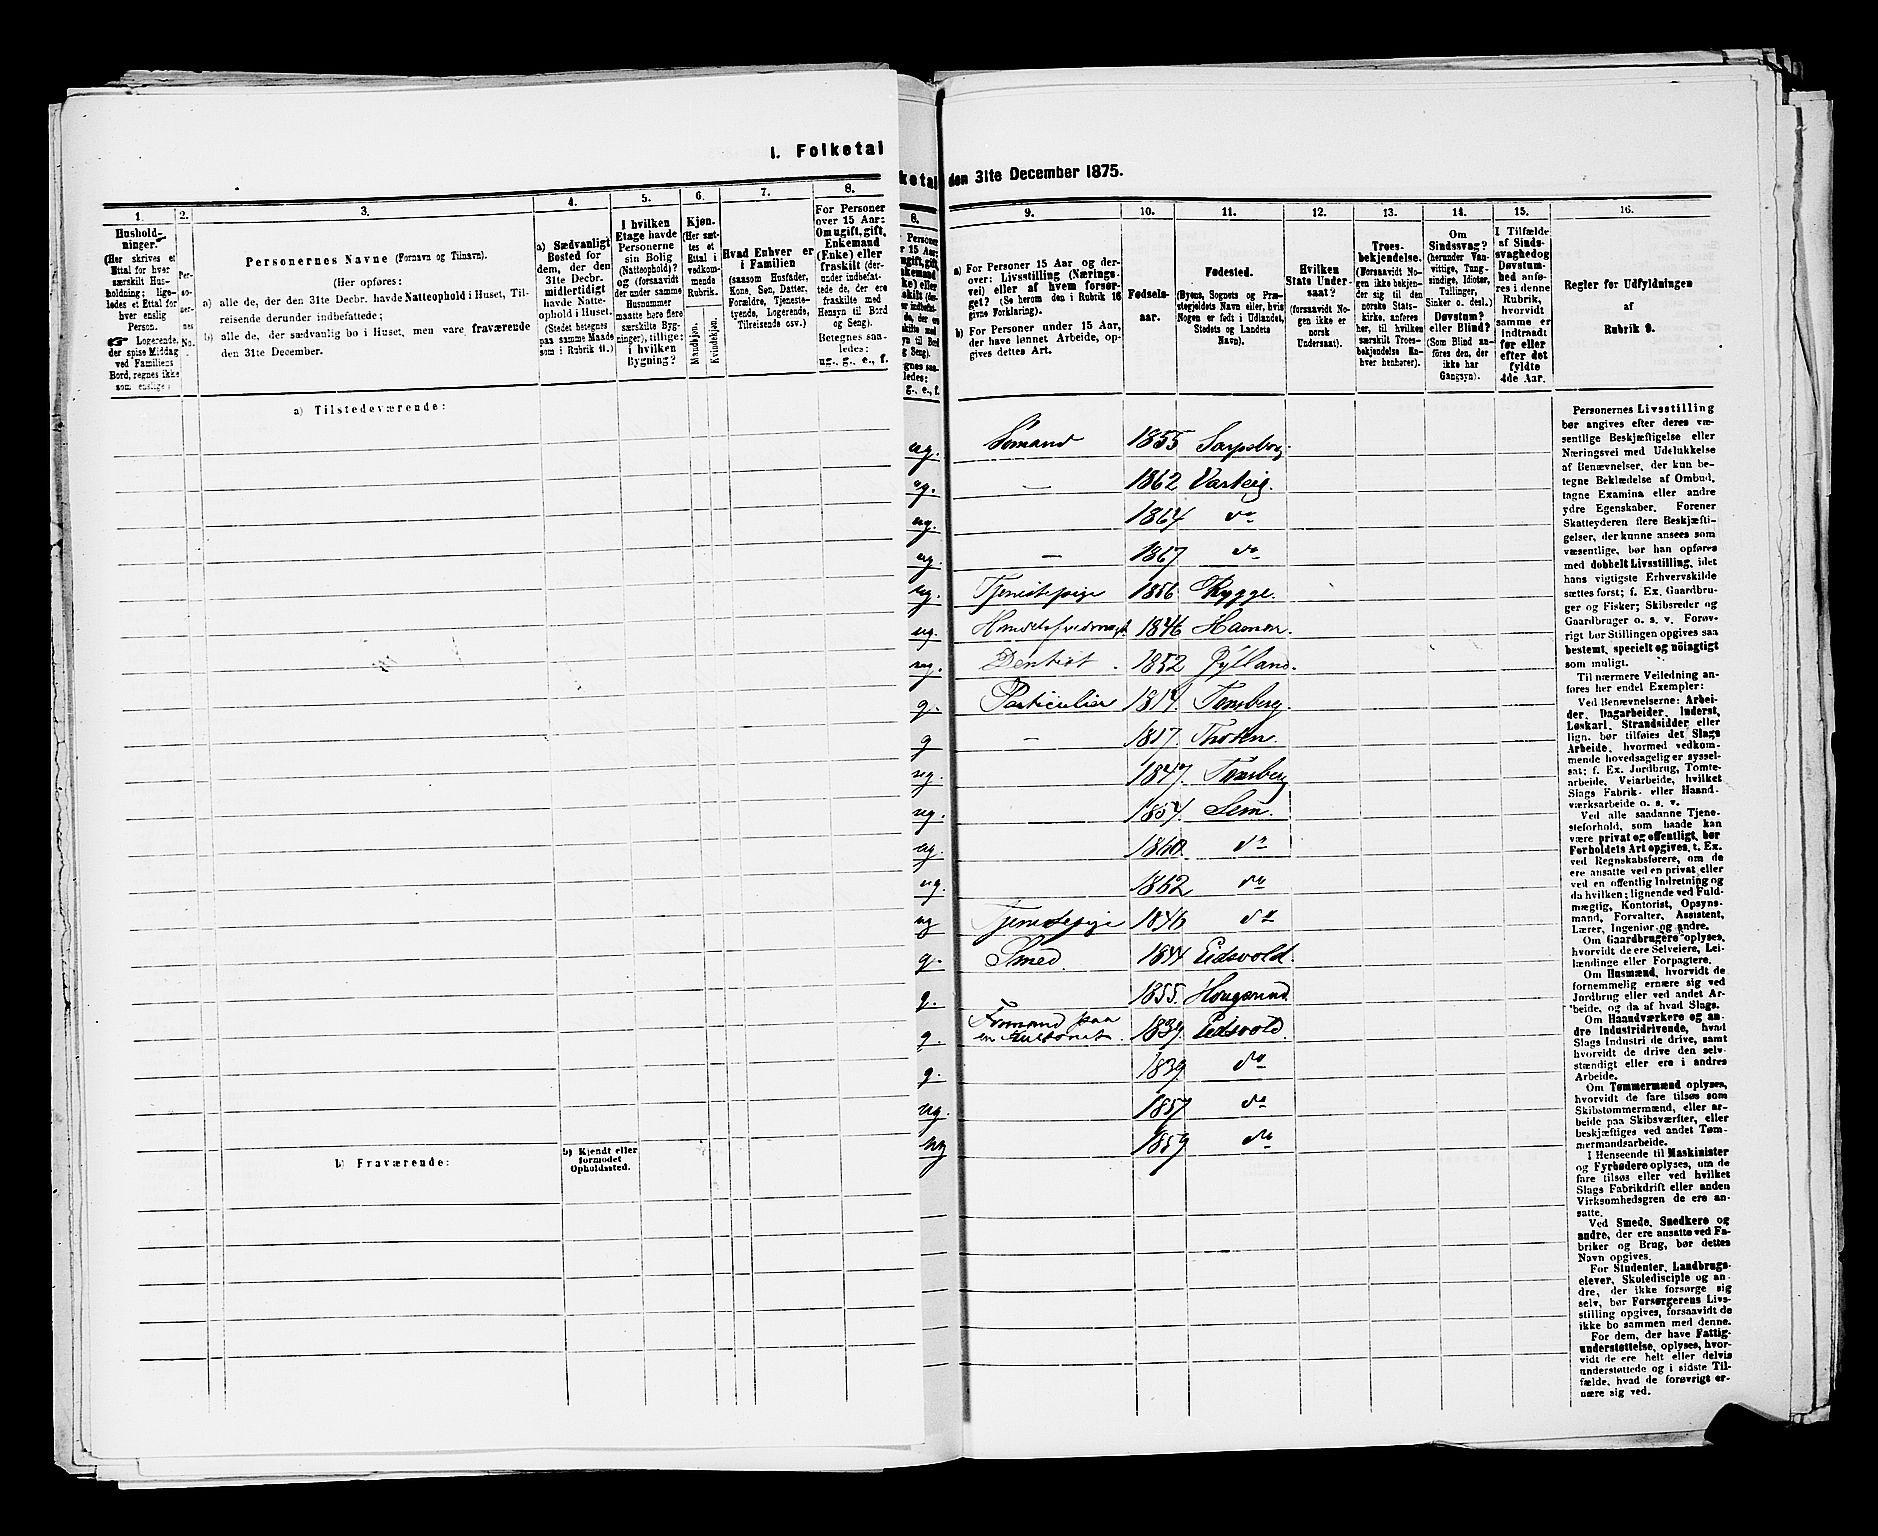 I. Folketal
1.
2.
3.
4.
5.
6.
7.
8.
Hushold-
ninger.
(Her skrives et
Ettal for hver
særskilt Hus-
holdning; lige-
ledes et Ettal for
hver enslig
Person.
☞ Logerende,
der spise Middag
ved Familiens
Bord, regnes ikke
som enslige)
Per-
so-
ner-
nes
No.
Personernes Navne (Fornavn og Tilnavn).
(Her opføres:
a) alle de, der den 31te Decbr. havde Natteophold i Huset, Til-
reisende derunder indbefattede;
b) alle de, der sædvanlig bo i Huset, men vare fraværende
den 31te December.
a) Sædvanligt
Bosted for
dem, der den
31te Decbr.
midlertidigt
havde Natte-
ophold i Huset.
(Stedet betegnes
paa samme Maade
som i Rubrik 11.)
I hvilken
Etage havde
Personerne
sin Bolig
(Natteophold)?
og (forsaavidt
der under samme
Husnummer
maatte høre flere
særskilte Byg-
ninger), tillige:
i hvilken
Bygning?
Kjøn.
(Her sæt-
tes et
Ettal i
vedkom-
mende
Rubrik.
Mandkjøn.
Kvindekjøn.
Hvad Enhver er
i Familien
(saasom Husfader,
Kone, Søn, Datter,
Forældre, Tjeneste-
tyende, Logerende,
Tilreisende osv.)
For Personer
over 15 Aar:
Om ugift, gift,
Enkemand
(Enke) eller
fraskilt (der-
under indbefat-
tede de, der ere
fraskilte med
Hensyn til Bord
og Seng).
Betegnes saa-
ledes:
ug., g., e., f.
a) Tilstedeværende:
b) Fraværende:
b) Kjendt eller
formodet
Opholdssted.
ketal
8.
den 31te December 1875.
9.
10.
11.
12.
13.
14.
15.
16.
a) For Personer 15 Aar og der-
over: Livsstilling (Nærings-
vei) eller af hvem forsør-
get? (Se herom den i Rubrik 16
givne Forklaring).
b) For Personer under 15 Aar,
der have lønnet Arbeide, op-
gives dettes Art.
Fødsels-
aar.
Fødested.
(Byens, Sognets og Præ-
stegjeldets Navn eller, hvis
Nogen er født i Udlandet,
Stedets og Landets
Navn).
Hvilken
Stats Under-
saat?
(forsaavidt No-
gen ikke er
norsk
Undersaat).
Troes-
bekjendelse.
(Forsaavidt No-
gen ikke bekjen-
der sig til den
norske Stats-
kirke, anføres
her, til hvilken
særskilt Troes-
bekjendelse En-
hver henhører).
Om
Sindssvag?
(herunder Van-
vittige, Tung-
sindige, Idioter,
Tullinger,
Sinker o. desl.)
Døvstum?
eller Blind?
(Som Blind an-
føres den, der
ikke har
Gangsyn).
I Tilfælde
af Sinds-
svaghed og
Døvstum-
hed anfø-
res i denne
Rubrik,
hvorvidt
samme er
indtraadt
før eller
efter det
fyldte
4de Aar.
Regler for Udfyldningen
af
Rubrik 9.
ug. Sømand 1855 Sarpsborg
ug. — 1862 Varteig.
ug. 1864 do
ug. — 1867 do
ug. Tjenestepige 1856 Rygge.
ug. 1846 Hamar.
ug. Dentist. 1852 Jylland.
g. Particulier 1814 Tønsberg.
g — 1817.
ug. 1847. Tønsberg
ug. 1854. Sem.
ug. 1860. do
ug. 1862 do
ug Tjenestepige 1846 do
g. Smed. 1844 Eidsvold.
g. 1855.
g. Formand paa
en 1834. Eidsvold.
g. 1839 do
ug. 1857 do
ug 1859 do
Personernes Livsstilling
bør angives efter deres væ-
sentlige Beskjæftigelse eller
Næringsvei med Udelukkelse
af Benævnelser, der kun be-
tegne Beklædelse af Ombud,
tagne Examina eller andre
ydre Egenskaber. Forener
Skatteyderen flere Beskjæfti-
gelser, der kunne ansees som
væsentlige, bør han opføres
med dobbelt Livsstilling, idet
hans vigtigste Erhvervskilde
sættes først; f. Ex. Gaardbru-
ger og Fisker; Skibsreder og
Gaardbruger o. s. v. Forøv-
rigt bør Stillingen opgives saa
bestemt, specielt og nöiagtigt
som muligt.
Til nærmere Veiledning an-
føres her endel Exempler:
Ved Benævnelserne: Arbei-
der, Dagarbeider, Inderst,
Løskarl, Strandsidder eller
lign. bør tilføies det Slags
Arbeide, hvormed vedkom-
mende hovedsagelig er syssel-
sat; f. Ex. Jordbrug, Tomte-
arbeide, Veiarbeide, hvilket
Slags Fabrik- eller Haand-
værksarbeide o. s. v.
Ved alle saadanne Tjene-
steforhold, som baade kan
være privat og offentligt, bør
Forholdets Art opgives, t. Ex.
ved Regnskabsførere, om de
ere ansatte ved en privat eller
ved en offentlig Indretning og
da hvilken; lignende ved Fuld-
mægtig, Kontorist, Opsyns-
mand, Forvalter, Assistent,
Lærer, Ingeniør og andre.
Om Gaardbrugere oplyses,
hvorvidt de ere Selveiere, Lei-
lændinge eller Forpagtere.
Om Husmænd, hvorvidt de
fornemmelig ernære sig ved
Jordbrug eller ved andet Ar-
beide, og da af hvad Slags.
Om Haandværkere og an-
dre Industridrivende, hvad
Slags Industri de drive, samt
hvorvidt de drive den selv-
stændigt eller ere i andres
Arbeide.
Om Tømmermænd oplyses,
hvorvidt de fare tilsøs som
Skibstømmermænd, eller ar-
beide paa Skibsværfter, eller
beskjæftiges ved andet Tøm-
mermandsarbeide.
I Henseende til Maskinister
og Fyrbødere oplyses, um de
fare tilsøs eller ved hvilket
Slags Fabrikdrift eller anden
Virksomhedsgren de ere an-
satte.
Ved Smede, Snedkere og
andre, der ere ansatte ved Fa-
briker og Brug, bør dettes
Navn opgives.
For Studenter, Landbrugs-
elever, Skoledisciple og an-
dre, der ikke forsørge sig
selv, bør Forsørgerens Livs-
stilling opgives, forsaavidt de
ikke bo sammen med denne.
For dem, der have Fattig-
understøttelse, oplyses, hvor-
vidt de ere helt eller delvis
understøttede og i sidste Til-
fælde, hvad de forøvrigt er-
nære sig ved.